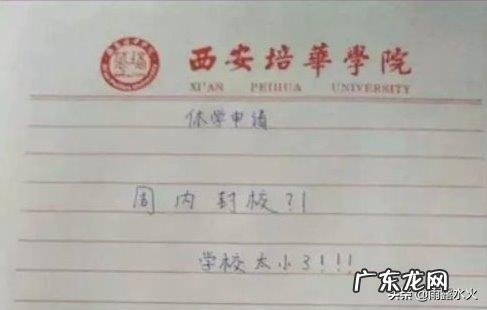 西安培華學院
XI'AN PEIHUA UNIVERSITY
休学申请
周内封校?!
学校太小了!!!
广东龙网
头条@雨露水火